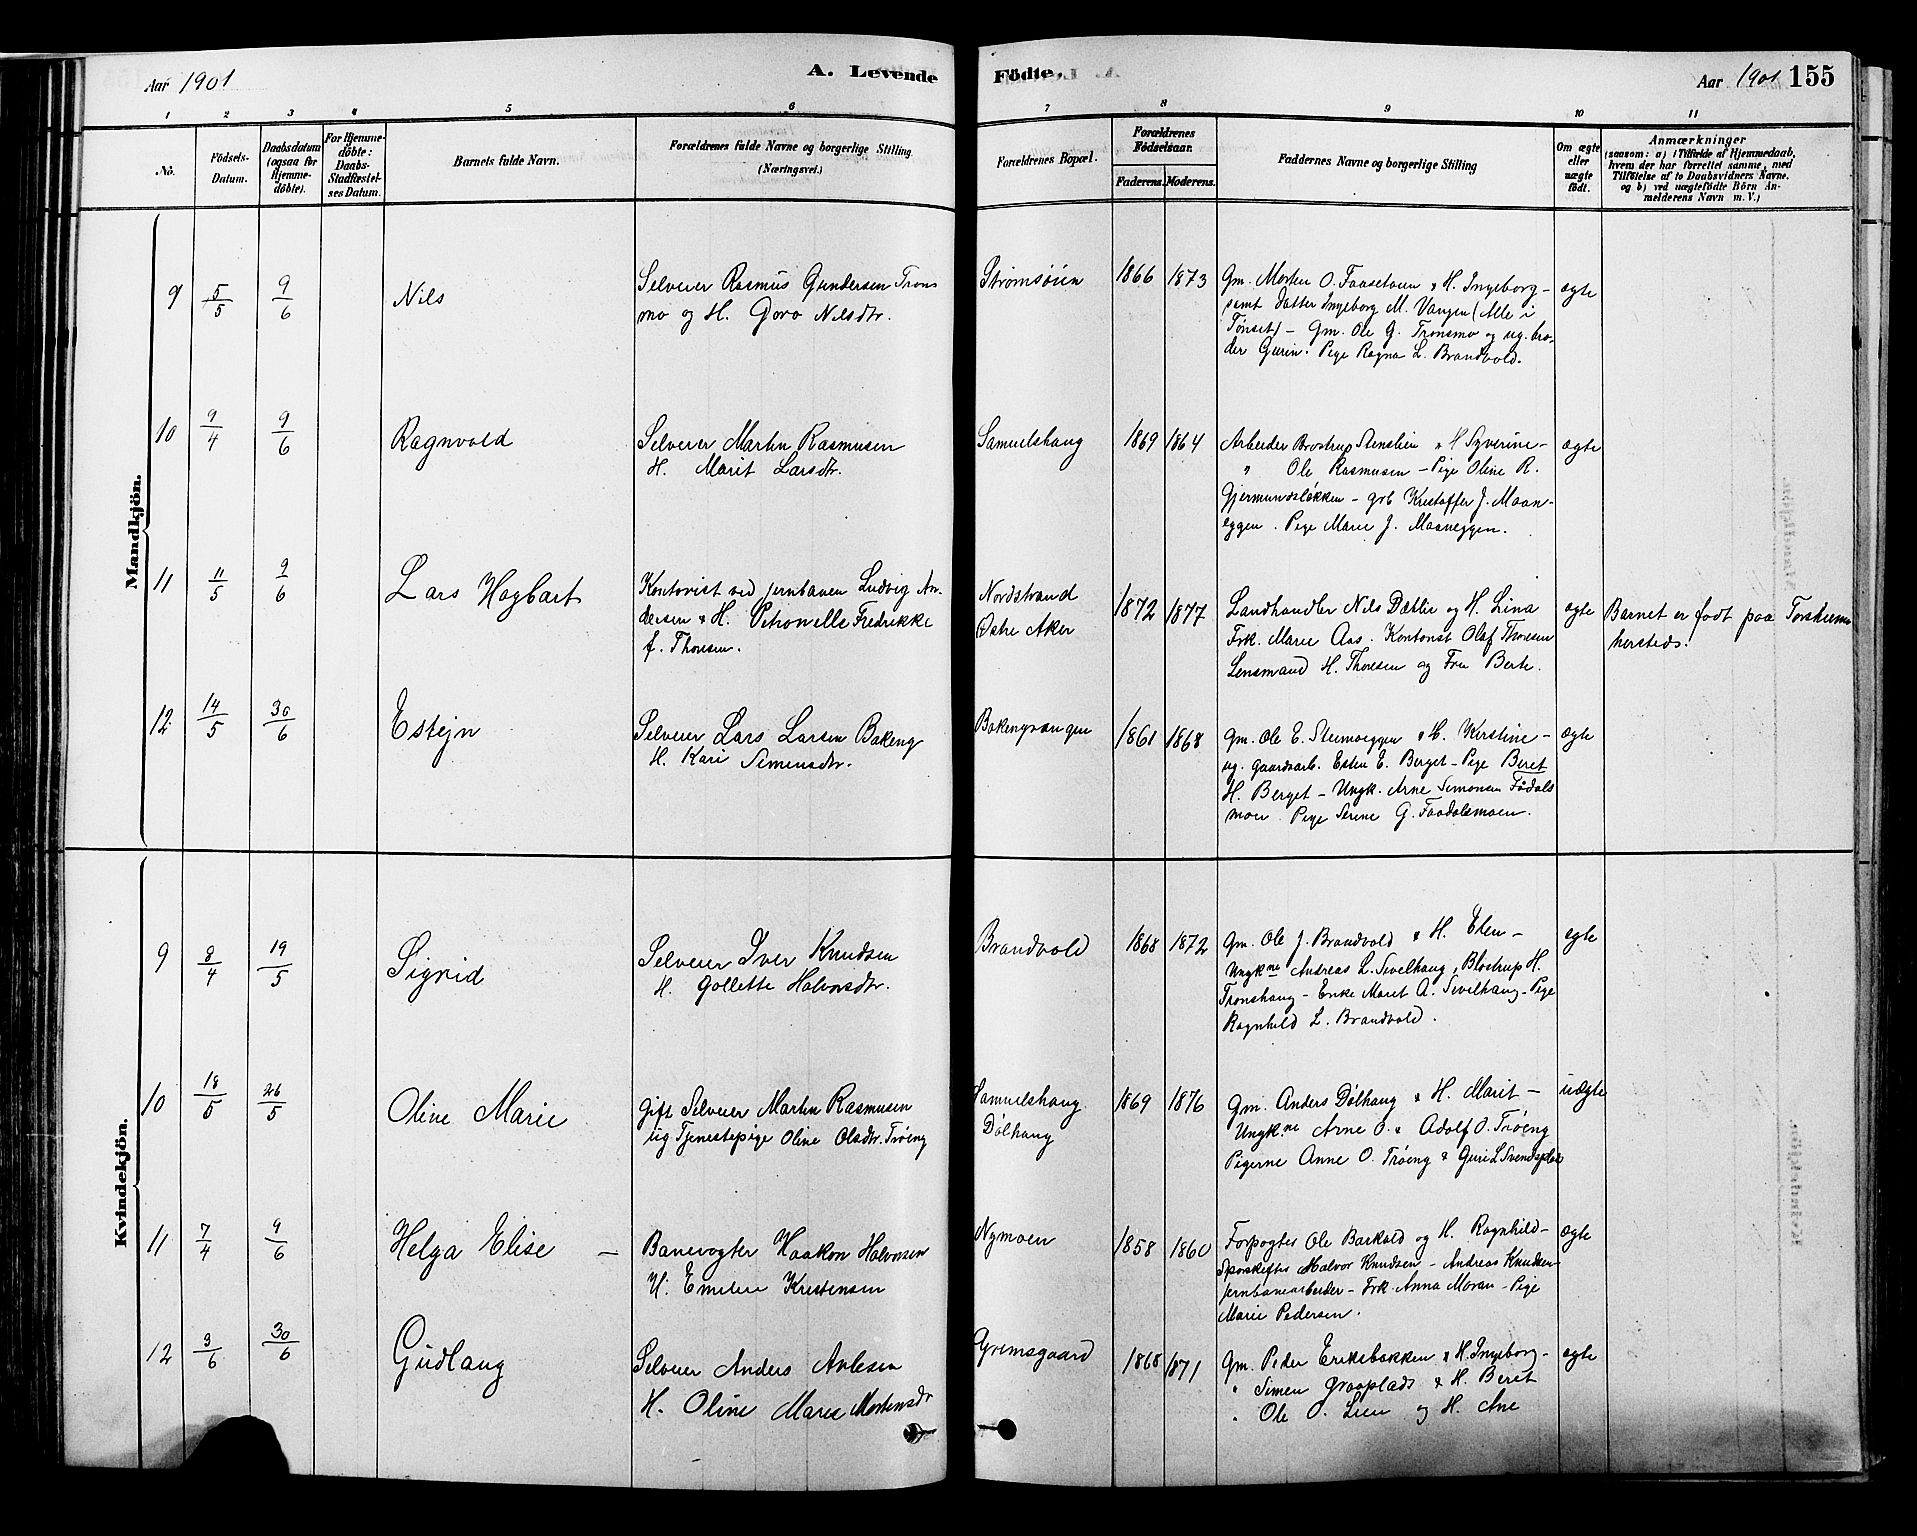 Aar 1901
A. Levende
Födte.
Aar 1901
155
1 2 3 4 5 6 7 8 9 10 11
No.
Födsels-
Datum.
Daabsdatum
(ogsaa for
Hjemme-
döbte).
For Hjemme-
döbte:
Daabs-
Stadfæstel-
ses Datum.
Barnets fulde Navn.
Forældrenes fulde Navne og borgerlige Stilling
(Næringsvei.)
Forældrenes Bopæl.
Forældrenes
Födselsaar.
Faderens. Moderens.
Faddernes Navne og borgerlige Stilling
Om ægte
eller
uægte
födt.
Anmærkninger
(saasom: a) i Tilfælde af Hjemmedaab,
hvem der har forrettet samme, med
Tilföielse af to Daabsvidners Navne.
og b) ved uægtefödte Börn An-
melderens Navn m. V.)
Mandkjön.
9 5/5 9/6
Nils
Selveier Rasmus Gundersen Trons
mo og H. Goro Nilsdtr.
Strømsøien
1866 1873
Gm. Morten O. Faasetouen & H. Ingeborg –
samt datter Ingeborg M. Vangen (Alle i
Tønset) – Gm. Ole G. Tronsmo og ug. bro-
der Gurin. Pige Ragna L. Brandvold.
ægte
10 9/4 9/6
Ragnvald
Selveier Martin Rasmusen
H. Marit Larsdtr.
Samuelshaug
1869 1864
Arbeider Brostrup Stenslien & H Syverine –
" Ole Rasmusen – Pige Oline R.
Gjermundsløkken – grb Kristoffer J. Moan-
eggen. Pige Marie J. Moaneggen.
ægte
11 11/5 9/6
Lars Hagbart
Kontorist ved jernbanen Ludvig An-
dersen & H. Petronelle Fredrikke
f. Thoresen.
Nordstrand
Østre Aker
1872 1877
Landhandler Nils Dætlie og H. Lina
Frk. Marie Aas. Kontorist Olaf Thoresen
Lensmand H. Thoresen og Fru Berte.
ægte
Barnet er født paa
hersteds.
12 14/5 30/6
Estejn
Selveier Lars Larsen Bakeng
H. Kari Simensdtr.
Bakengvangen
1861 1868
Gm. Ole E. Steimoeggen & H. Kirstine –
ug. gaardsarb. Esten E. Berget – Pige Beret
H. Berget – Ungk. Arne Simonsen Fådals
moen. Pige Serine G. Faadalsmoen.
ægte
Kvindekjön.
9 8/4 19/5
Sigrid
Selveier Iver Knudsen
H. Gollette Halvorsdtr.
Brandvold
1868 1872
Gm. Ole J. Brandvold & H. Elen –
Ungkne Andreas L. Sivelhaug, Blostrup H.
Tronshaug – Enke Marit A. Sivelhaug – Pige
Ragnhild L. Brandvold.
egte
10 18/5 26/5
Oline Marie
Gift Selveier Martin Rasmusen
ug Tjenestepige Oline Olsdtr. Trøeng
Samuelshaug
Dølhaug
1869 1876
Gm. Anders Dølhaug & H. Marit –
Ungk.ne Arne O. & Adolf O. Trøeng
Pigerne Anne O. Trøeng & Guri L Svendsplas
uægte
11 7/4 9/6
Helga Elise –
Banevogter Haakon Halvorsen
H. Emilie Kristensen
Nymoen
1858 1860
Forpagter Ole Barkald og H. Ragnhild –
Sporskifter Halvor Knudsen – Andreas Knudsen
jernbanearbeider – Frk. Anna Moran – Pige
Marie Pedersen.
ægte
12 3/6 30/6
Gudlaug
Selveier Anders Avlesen
H. Oline Marie Mortensdtr
Grimsgaard
1868 1871
Gm. Peder Eriksbakken & H. Ingeborg –
" Simen Graaplads & H. Beret
" Ole O. Lien og H. Ane
ægte